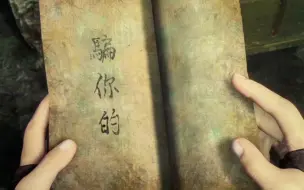 騙你的